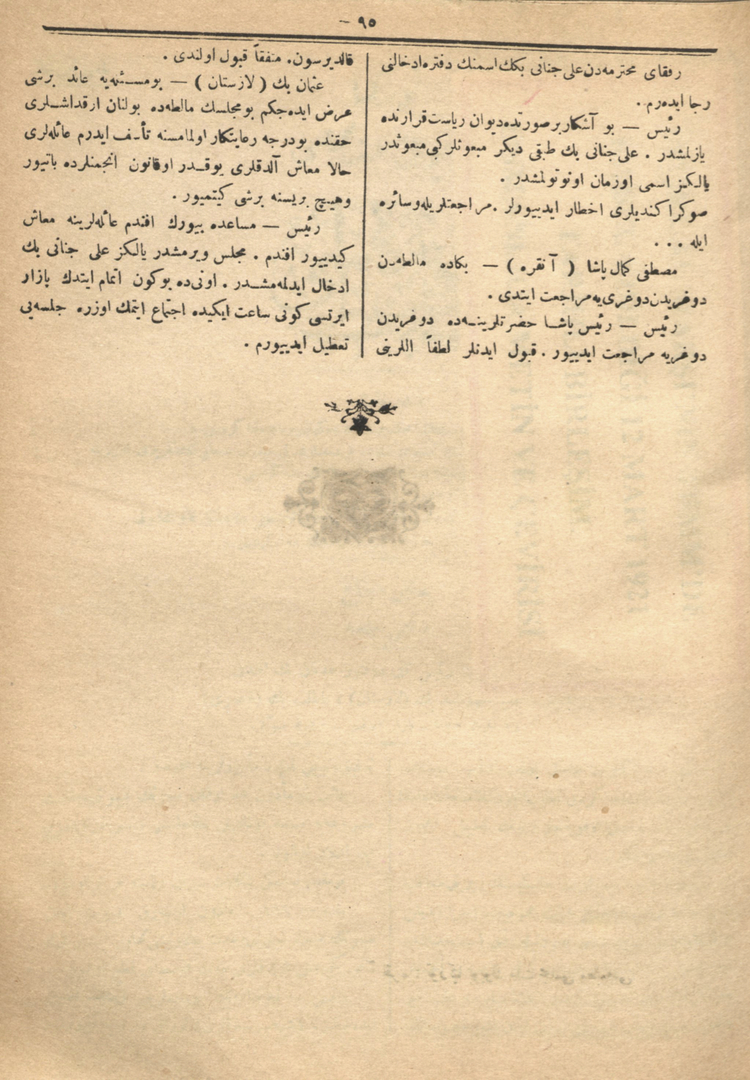 — ٩٥ —
رفقای محترمه‌دن علی جنانی بكك اسمنك دفتره ادخالنی
رجا ایده‌رم.
رئیس — بو آشكار بر صورتده دیوان ریاست قرارنده
یازلمشدر . علی جنانی بك طبقی دیكر مبعوثلر كبی مبعوثدر
یالكز اسمی اوزمان اونوتولمشدر .
صوكرا كندیلری اخطار ایدییورلر . مراجعتلریله وسائره
ایله ...
مصطفی كمال پاشا ( آنقره ) — بكاده مالطه‌دن
دوغریدن دوغری‌یه مراجعت ایتدی .
رئیس — رئیس پاشا حضرتلرینه‌ده دوغریدن
دوغری‌یه مراجعت ایدییور . قبول ایدنلر لطفاً اللرینی
قالدیرسون. متفقاً قبول اولندی .
عثمان بك ( لازستان ) — بو مسئله‌یه عائد برشی
عرض ایده‌جكم بو مجلسك مالطه‌ده بولنان ارقداشلری
حقنده بودرجه رعایتكار اولمامسنه تأسف ایدرم عائله‌لری
حالا معاش آلدقلری یوقدر اوقانون انجمنلرده یاتیور
وهیچ بریسنه برشی كیتمیور .
رئیس — مساعده بیورك افندم عائله‌لرینه معاش
كیدییور افندم . مجلس ویرمشدر یالكز علی جنانی بك
ادخال ایدلمه‌مشدر . اونی‌ده بوكون اتمام ایتدك پازار
ایرتسی كونی ساعت ایكیده اجتماع ایتمك اوزره جلسه‌یی
تعطیل ایدییورم .